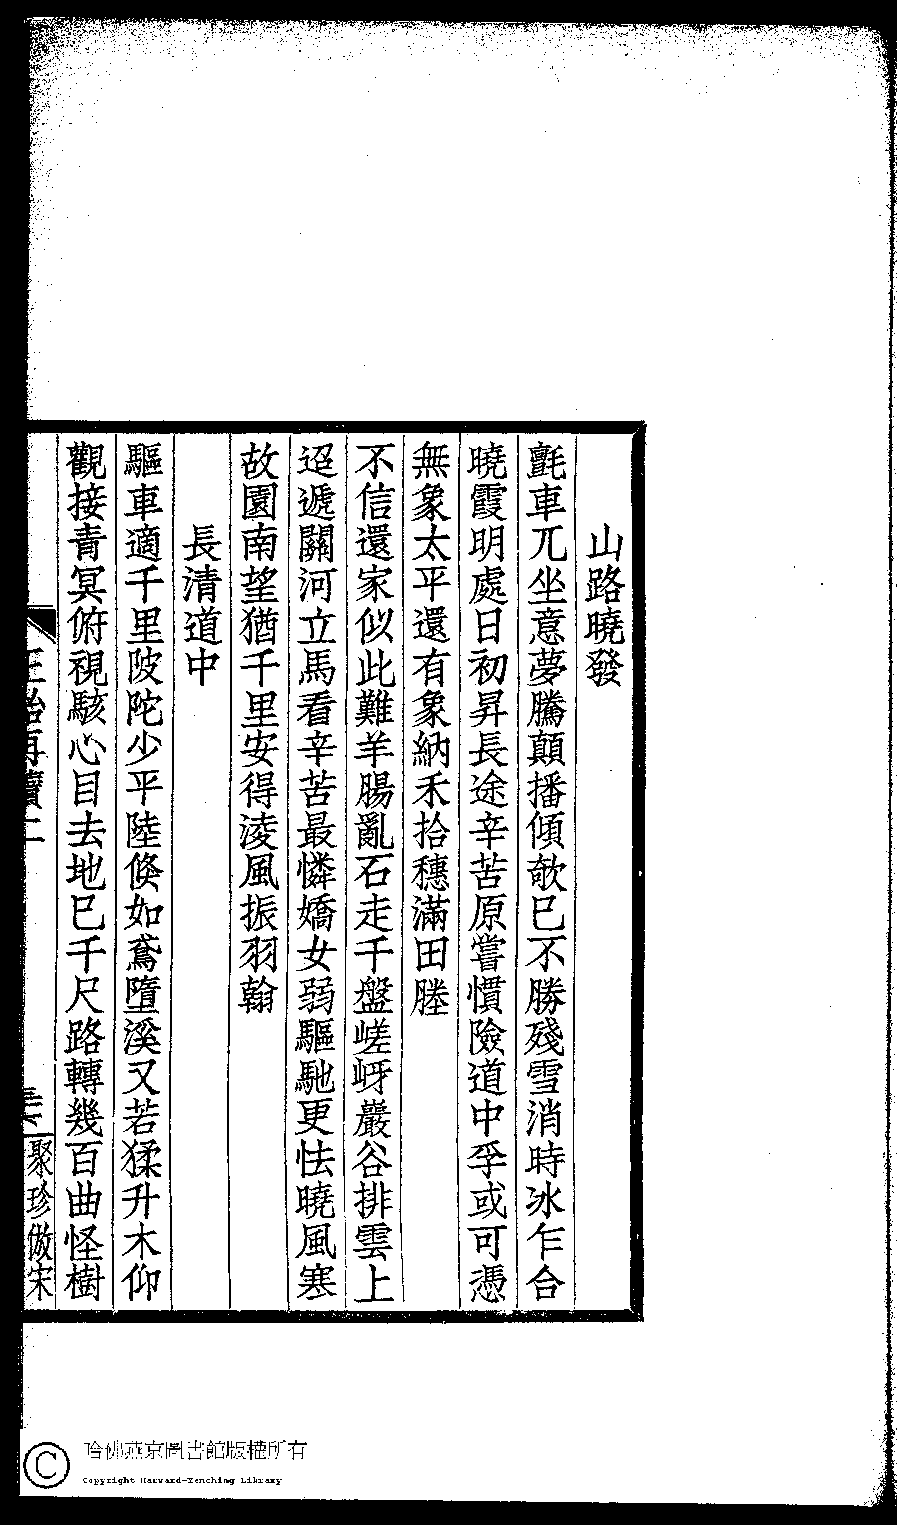 山路曉發
氈車兀坐意夢騰顛播傾欹巳不勝殘雪消時冰乍合
曉霞明處日初昇長途辛苦原嘗慣險道中孚或可憑
無象太平還有象納禾拾穗滿田塍
不信還家似此難羊腸亂石走千盤嵯岈巖谷排雲上
迢遞關河立馬看辛苦最憐嬌女弱驅馳更怯曉風寒
故園南望猶千里安得淩風振羽翰
長清道中
驅車適千里陂陀少平陸倏如鳶墮溪又若猱升木仰
觀接青冥俯視駭心目去地巳千尺路轉幾百曲怪樹
聚珍倣宋
哈佛燕京圖書館版權所有
Copyright Harvard-Yenching Library